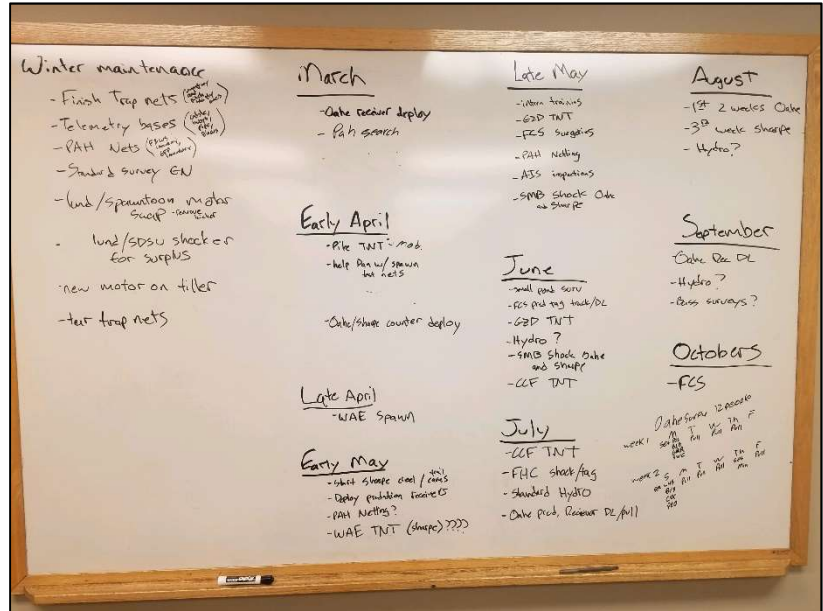 Winter maintenance
- Finish Trap nets
- Telemetry bases
- PAH Nets
- Standard survey GN
- lund/spawntoon motor
swap - remove
lund/SDSU shocker
for surplus
- new motor on tiller
- tear trap nets
March
- Oahe receiver deploy
- Pah search
Early April
- Pike TNT - mob.
- help Dan w/ spawn
trap nets
- Oahe/sharpe counter deploy
Late April
- WAE Spawn
Early May
- Start sharpe creel / trail cams
- Deploy predation receivers
- PAH Netting?
- WAE TNT (sharpe)????
Late May
- intern training
- GZD TNT
- FCS surgeries
- PAH Netting
- AIS inspections
- SMB Shock Oahe
and Sharpe
June
- small pond surv
- FCS pred tag track/DL
- GZD TNT
- Hydro?
- SMB Shock Oahe
and Sharpe
- CCF TNT
July
- CCF TNT
- FHC shock/tag
- Standard Hydro
- Oahe pred, Receiver DL/pull
August
- 1st 2 weeks Oahe
- 3rd week sharpe
- Hydro?
September
- Oahe Rec DL
- Hydro?
- Bass surveys?
Octobers
- FCS
Oahe Survey 12 people
M T W Th F
week 1 Set Pull Pull Pull
week 2 S M T W Th F
Pull Pull Pull Pull